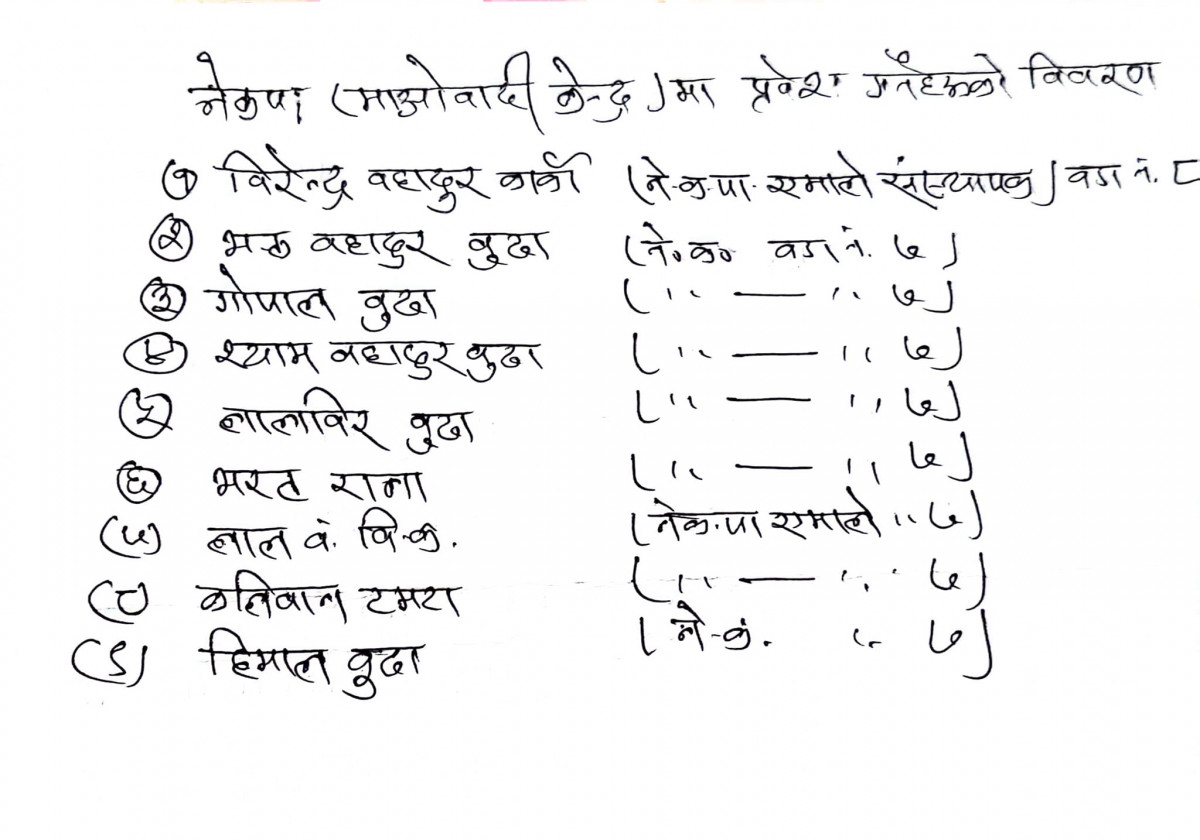 नेकपा (माओवादी केन्द्र) मा प्रवेश गर्नेहरूको विवरण
(१) विरेन्द्र वहादुर कार्की (ने.क.पा. एमाले संस्थापक) वडा नं. ८
(२) भक्त वहादुर वुढा (ने.का. वडा नं. ७)
(३) गोपाल वुढा ( " — " ७)
(४) श्याम वहादुर वुढा ( " — " ७)
(५) लालविर वुढा ( " — " ७)
(६) भरत राना ( " — " ७)
(७) लाल वं. वि.क. (ने.क.पा एमाले " ७)
(८) कलिवान टमटा ( " — " ७)
(९) हिमाल वुढा (ने.कं. " ७)